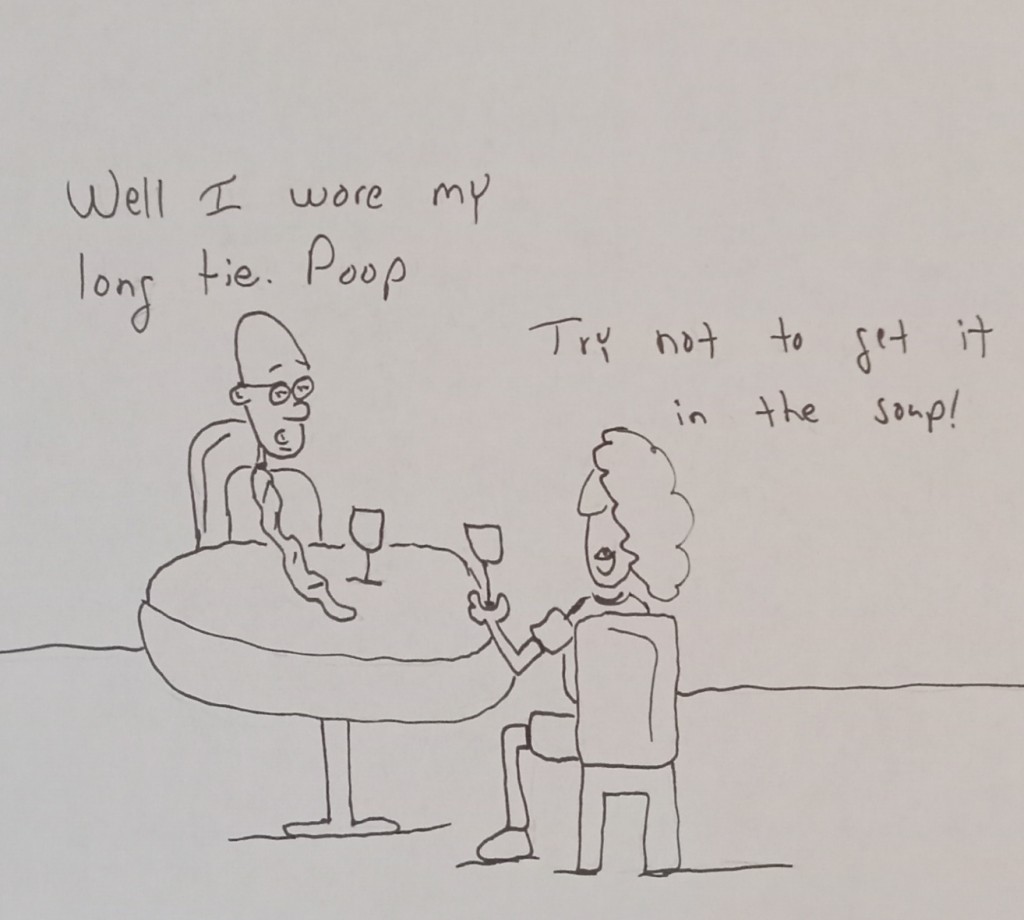 Well I wore my
long tie. Poop
Try not to get it
in the soup!